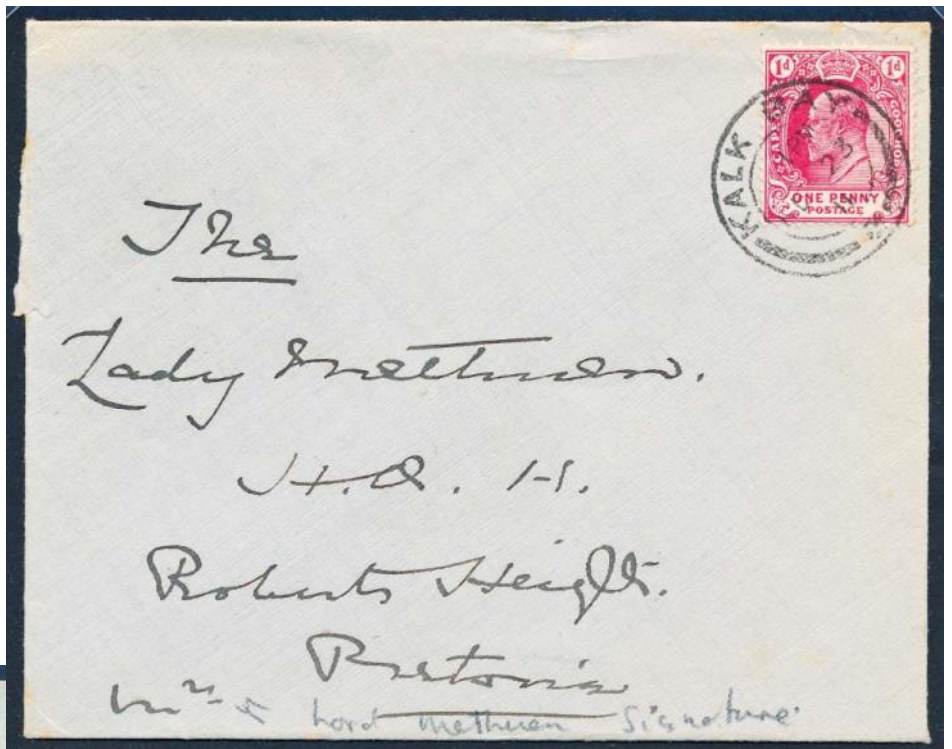 1d 1d
CAPE OF GOOD HOPE
ONE PENNY
POSTAGE
KALK BAY
The
Lady Methuen.
H.Q. H.
Roberts Heights.
Pretoria
Lord Methuen Signature.